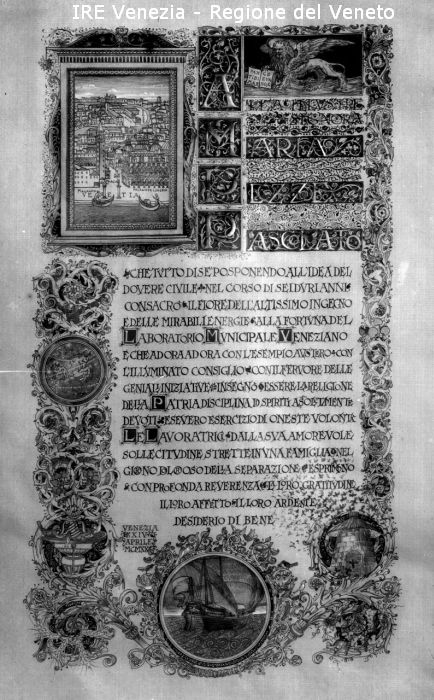 IRE Venezia - Regione del Veneto
ALLA ILLVSTRE
SIGNORA
MARIA
PEZZE
PASCOLATO
VENETIA
CHE TVTTO DI SE POSPONENDO ALL'IDEA DEL
DOVERE CIVILE NEL CORSO DI SEI DVRI ANNI
CONSACRO IL FIORE DELL'ALTISSIMO INGEGNO
E DELLE MIRABILI ENERGIE ALLA FORTVNA DEL
LABORATORIO MVNICIPALE VENEZIANO
E CHE AD ORA AD ORA CON L'ESEMPIO AVSTERO CON
L'ILLVMINATO CONSIGLIO CON IL FERVORE DELLE
GENIALI INIZIATIVE INSEGNO ESSERE LA RELIGIONE
DELLA PATRIA DISCIPLINA DI SPIRITI ASSOLVTAMENTE
DEVOTI E SEVERO ESERCIZIO DI ONESTE VOLONTA
LE LAVORATRICI DALLA SVA AMOREVOLE
SOLLECITVDINE STRETTE IN VNA FAMIGLIA NEL
GIORNO DOLOROSO DELLA SEPARAZIONE ESPRIMONO
CON PROFONDA REVERENZA LA LORO GRATITVDINE
IL LORO AFFETTO IL LORO ARDENTE
DESIDERIO DI BENE
VENEZIA
APRILE